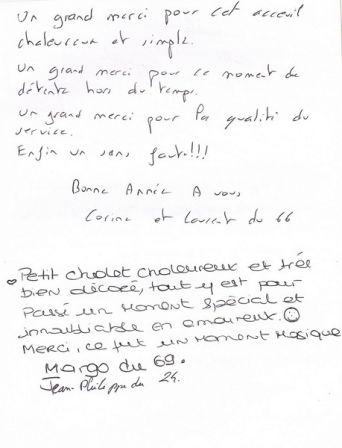 Un grand merci pour cet acceuil
chaleureux et simple.
Un grand merci pour ce moment de
détente hors du temps.
Un grand merci pour la qualité du
service.
Enfin un sans faute!!!
Bonne Année A vous
Corine et Laurent du 66
Petit chalet chaleureux et très
bien décoré, tout y est pour
Passé un moment spécial et
innoubliable en amoureux.
Merci, ce fut un moment magique
Margo du 69.
Jean-Philippe du 24.